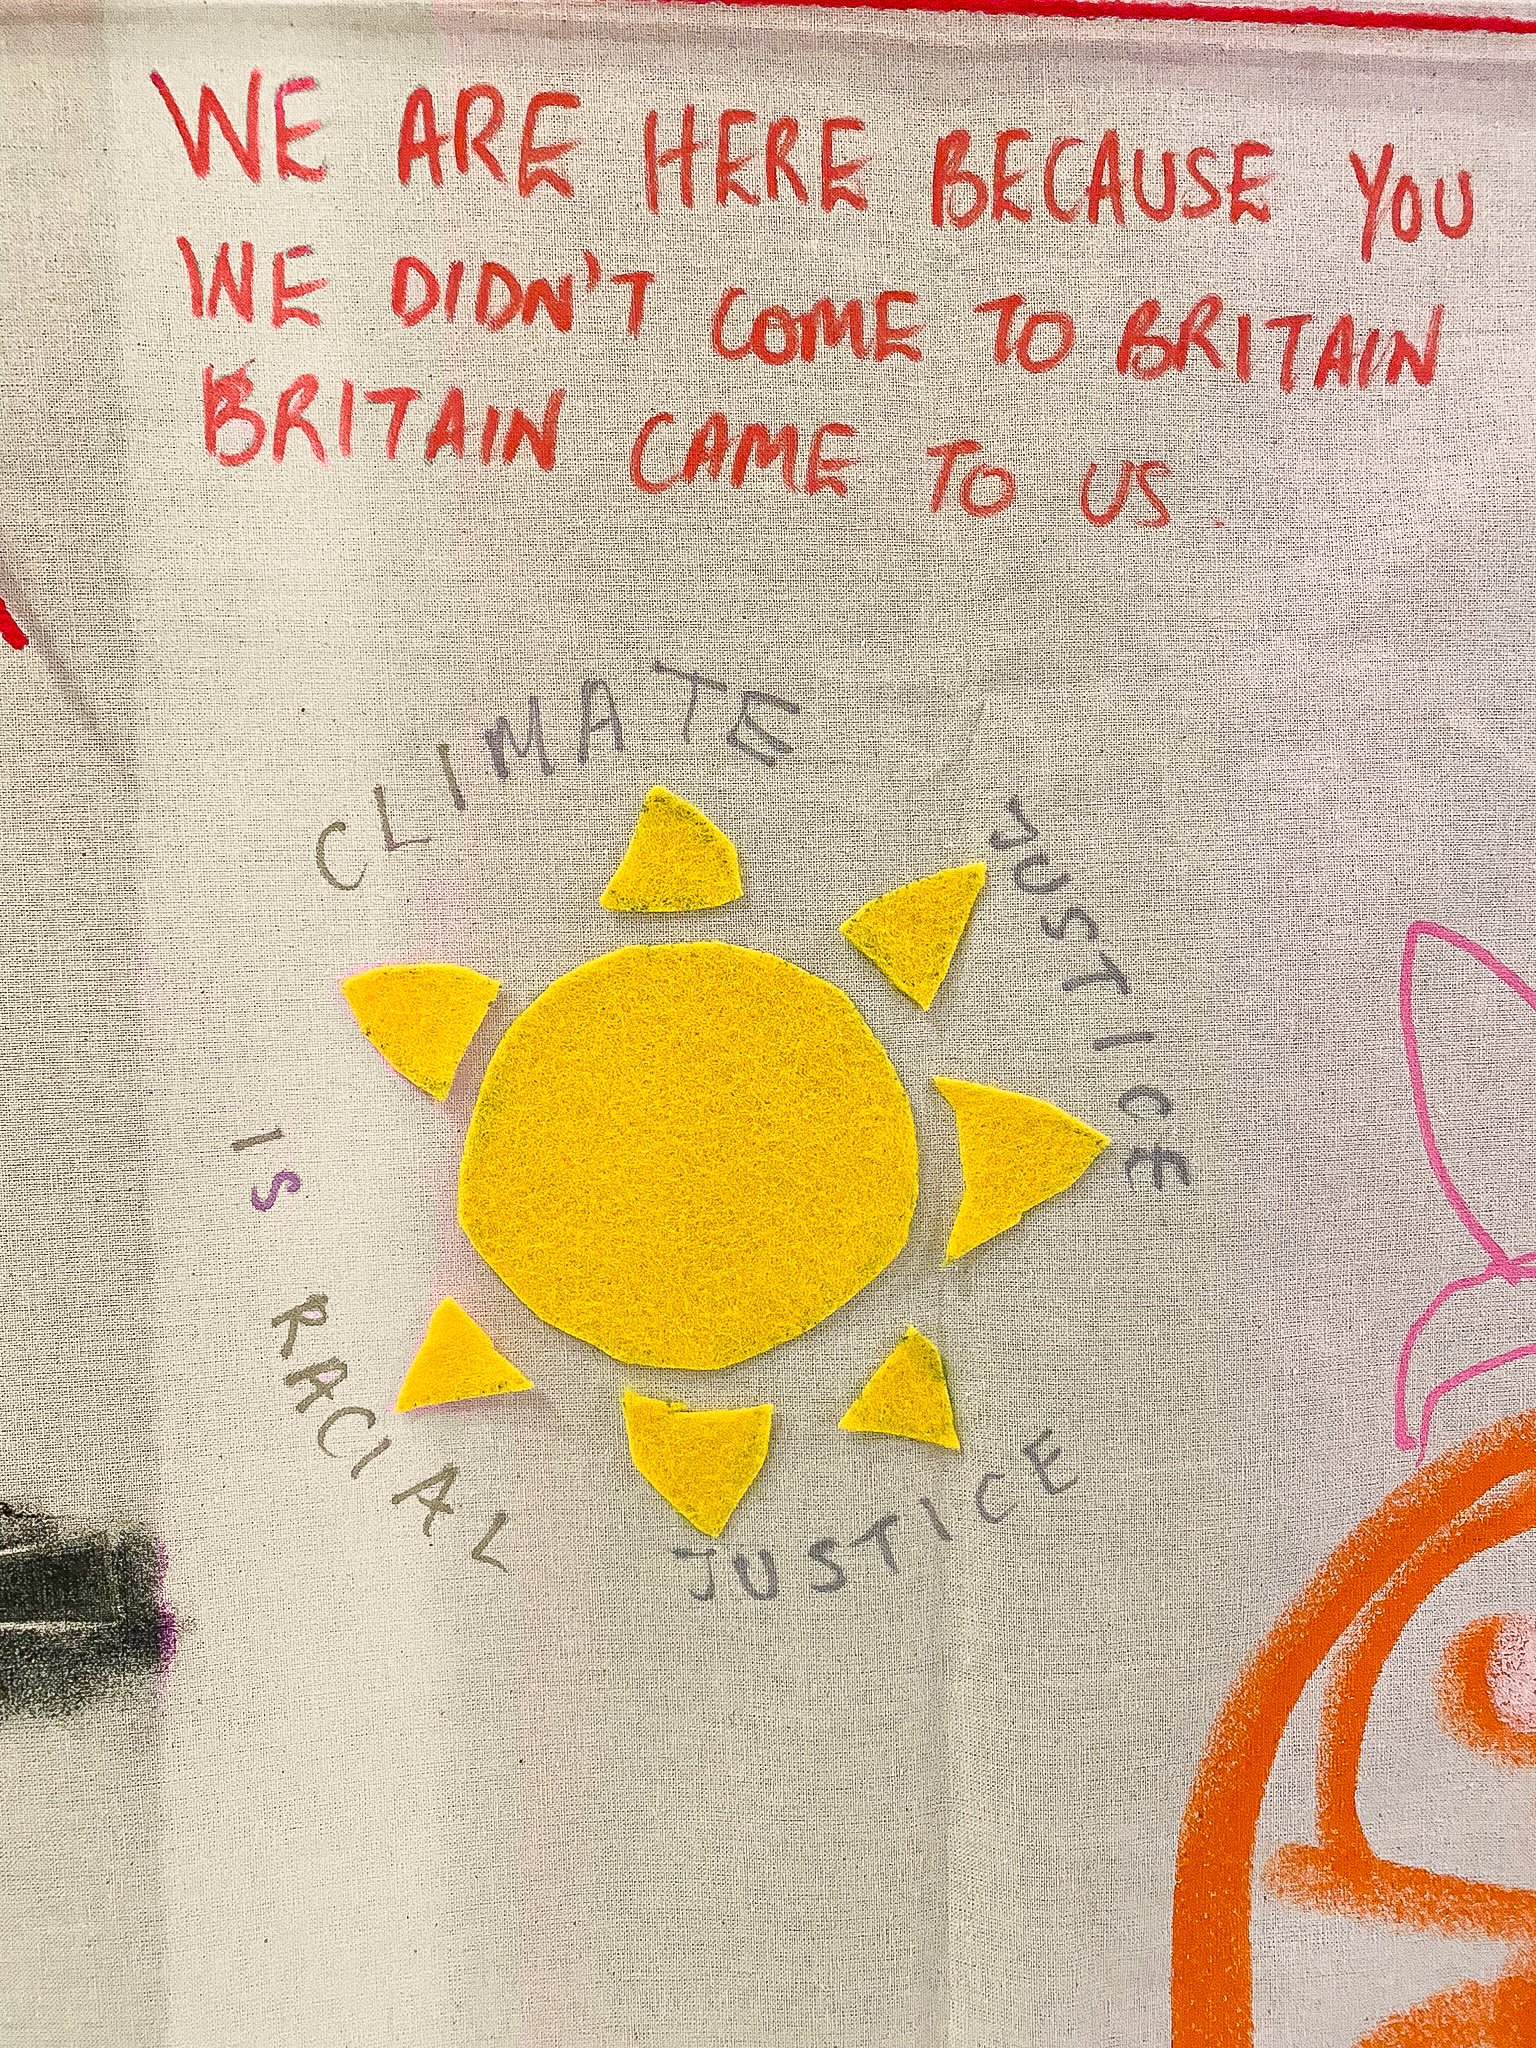 WE ARE HERE BECAUSE YOU
WE DIDN'T COME TO BRITAIN
BRITAIN CAME TO US.
CLIMATE JUSTICE
IS RACIAL JUSTICE